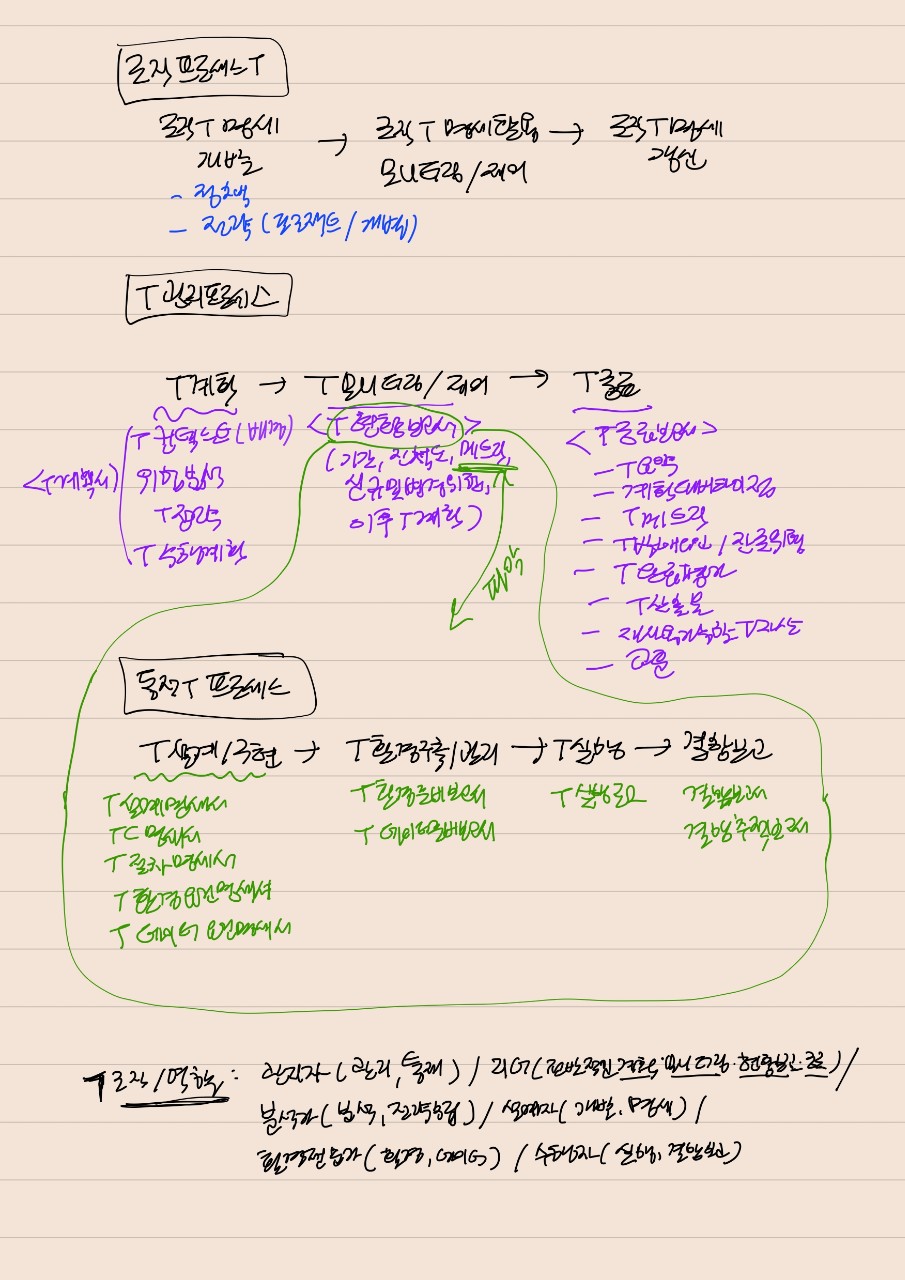 조직프로세스 T
조직 T 명세 → 조직 T 명세 활용 → 조직 T 명세
개발 모니터링/제어 갱신
- 정책
- 전략 (프로젝트/개별)
T 관리프로세스
T 계획 → T 모니터링/제어 → T 종료
<T계획서>
T 컨텍스트(배경)
위험분석
T 전략
T 수행계획
<T 현황보고서>
(기간, 진척도, 메트릭,
신규 및 변경위험,
이후 T 계획)
<T 종료보고서>
- T 요약
- 계획대비 차이점
- T 메트릭
- T 방해요인/잔존위험
- T 완료평가
- T 산출물
- 재사용가능한 T 자산
- 교훈
파악
동적 T 프로세스
T 설계/구현 → T 환경구축/관리 → T 실행 → 결함보고
T 설계명세서
TC 명세서
T 절차명세서
T 환경 요건명세서
T 데이터 요건명세서
T 환경준비보고서
T 데이터준비보고서
T 실행로그
결함보고서
결함추적보고서
T 조직/역할: 관리자(관리, 통제) / 리더(전반적인 계획·모니터링·현황보고·종료) /
분석가(분석, 전략수립) / 설계자(개발, 명세) /
환경전문가(환경, 데이터) / 수행자(실행, 결함보고)